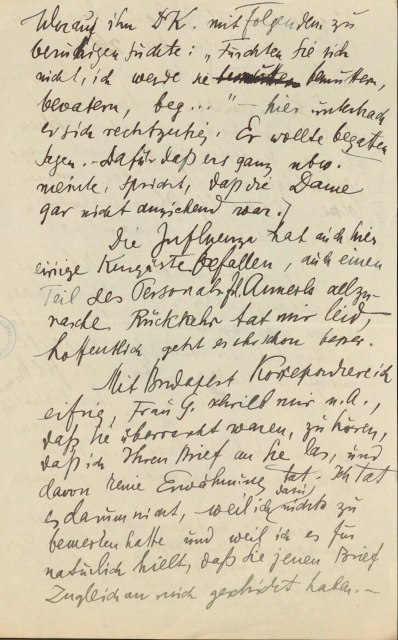 Worauf ihn Dr K. mit Folgendem zu
beruhigen suchte: „Fürchten Sie sich
nicht, ich werde sie bemuttern,
bevatern, beg..." – hier unterbrach
er sich rechtzeitig. Er wollte begatten
sagen. – Dafür daß er's ganz ubw.
meinte, spricht, daß die Dame
gar nicht anziehend war.)
Die Influenza hat auch hier
einige Kurgäste befallen, auch einen
Teil des Personals. Frl. Annerls allzu-
rasche Rückkehr tat mir leid,
hoffentlich geht es ihr schon besser.
Mit Budapest korrespondiere ich
eifrig, Frau G. schrieb mir u. a.,
daß Sie überrascht waren, zu hören,
daß ich Ihren Brief an sie las, und
davon keine Erwähnung tat. – Ich tat
es darum nicht, weil ich dazu nichts zu
bemerken hatte und weil ich es für
natürlich hielt, daß Sie jenen Brief
zugleich an mich gerichtet haben. –